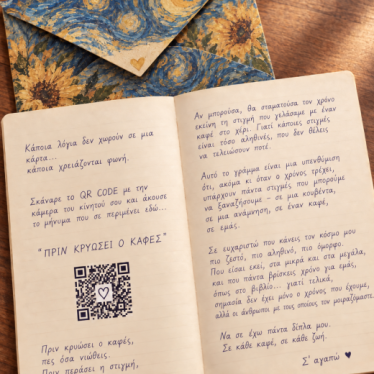 Κάποια λόγια δεν χωρούν σε μια
κάρτα...
κάποια χρειάζονται φωνή.
Σκάναρε το QR CODE με την
κάμερα του κινητού σου και άκουσε
το μήνυμα που σε περιμένει εδώ...
"ΠΡΙΝ ΚΡΥΩΣΕΙ Ο ΚΑΦΕΣ"
Πριν κρυώσει ο καφές,
πες όσα νιώθεις.
Πριν περάσει η στιγμή,
Αν μπορούσα, θα σταματούσα τον χρόνο
εκείνη τη στιγμή που γελάσαμε με έναν
καφέ στο χέρι. Γιατί κάποιες στιγμές
είναι τόσο αληθινές, που δεν θέλεις
να τελειώσουν ποτέ.
Αυτό το γράμμα είναι μια υπενθύμιση
ότι, ακόμα κι όταν ο χρόνος τρέχει,
υπάρχουν πάντα στιγμές που μπορούμε
να ξαναζήσουμε - σε μια κουβέντα,
σε μια ανάμνηση, σε έναν καφέ,
σε εμάς.
Σε ευχαριστώ που κάνεις τον κόσμο μου
πιο ζεστό, πιο αληθινό, πιο όμορφο.
Που είσαι εκεί, στα μικρά και στα μεγάλα,
και που πάντα βρίσκεις χρόνο για εμάς,
όπως στο βιβλίο... γιατί τελικά,
σημασία δεν έχει μόνο ο χρόνος που έχουμε,
αλλά οι άνθρωποι με τους οποίους τον μοιραζόμαστε.
Να σε έχω πάντα δίπλα μου.
Σε κάθε καφέ, σε κάθε ζωή.
Σ' αγαπώ ♥